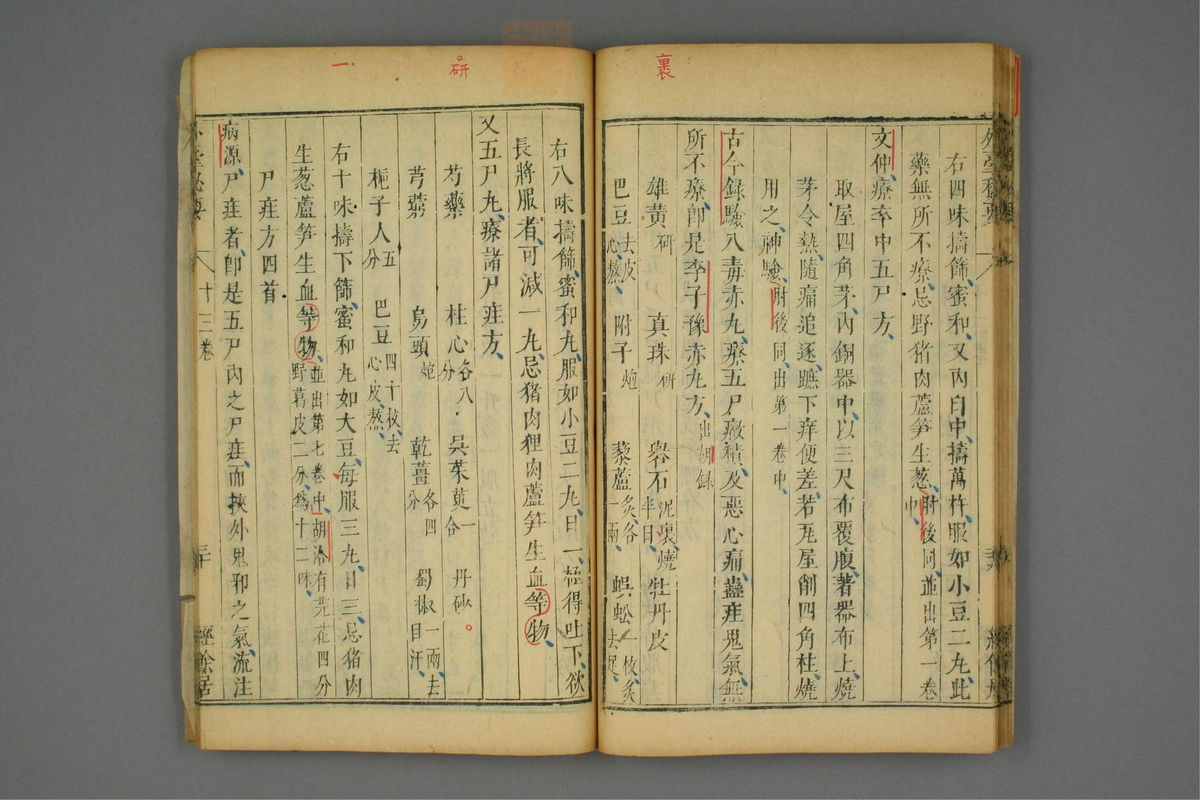 裏
右四味擣篩蜜和又內臼中擣萬杵服如小豆二丸此
藥無所不療忌野猪肉蘆笋生葱肘後同並出第一卷中
文仲療卒中五尸方
取屋四角茅內銅器中以三尺布覆腹著器布上燒
茅令熱隨痛追逐蹠下痒便差若瓦屋削四角柱燒
用之神驗肘後同出第一卷中
古今録驗八毒赤丸療五尸癥積及惡心痛蠱疰鬼氣無
所不療即是李子豫赤丸方出胡録
雄黃研 真珠研 礜石泥裹燒半日 牡丹皮
巴豆去皮心熬 附子炮 藜蘆炙各一兩 蜈蚣一枚炙去足
研
一
右八味擣篩蜜和丸服如小豆二丸日一極得吐下欲
長將服者可減一丸忌猪肉狸肉蘆笋生血等物
又五尸丸療諸尸疰方
芍藥 桂心各八分 吳茱萸一合 丹砂
芎藭 烏頭炮 乾薑各四分 蜀椒一兩去目汗
梔子人五分 巴豆四十枚去心皮熬
右十味擣下篩蜜和丸如大豆每服三丸日三忌猪肉
生葱蘆笋生血等物並出第七卷中胡洽有芫花四分野葛皮二分為十二味
尸疰方四首
病源尸疰者即是五尸內之尸疰而挾外鬼邪之氣流注
外臺秘要 十三卷 三十 經餘居